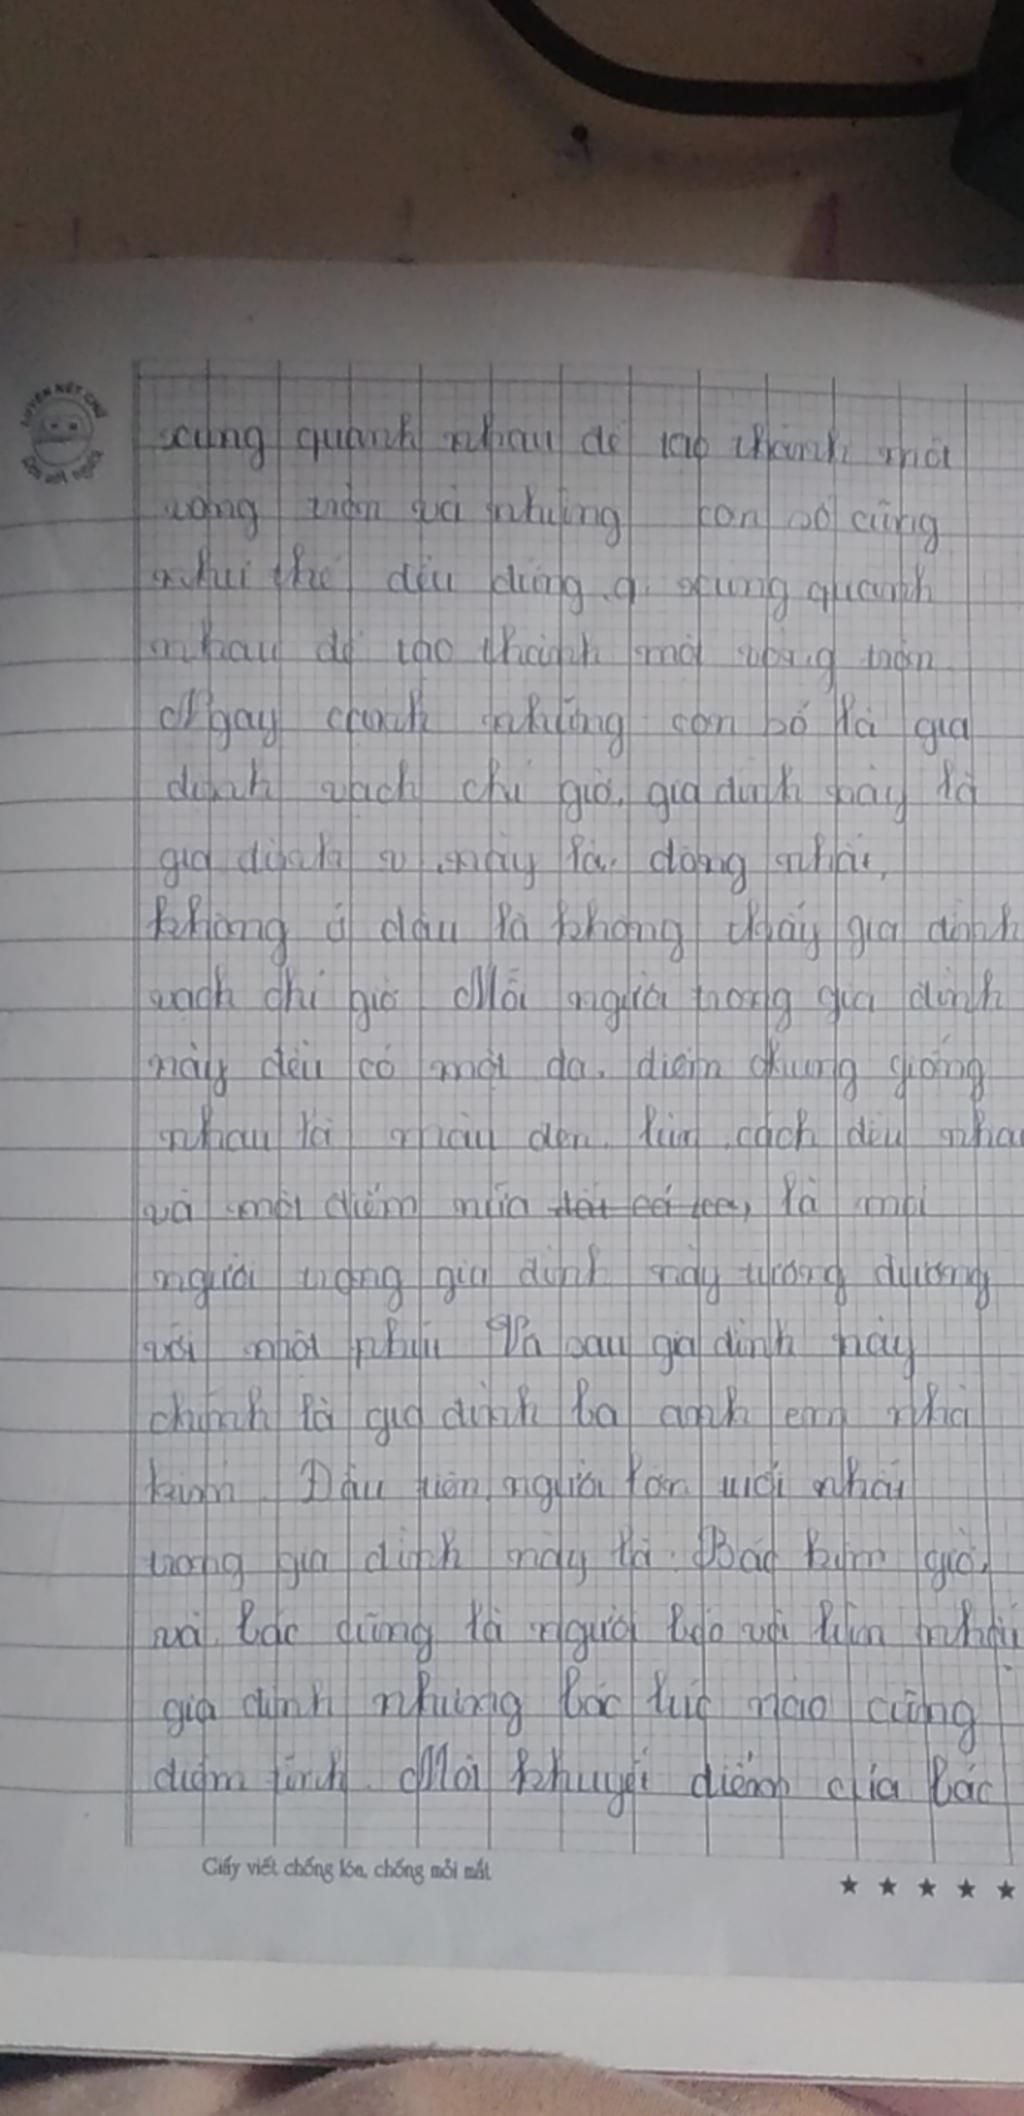 xung quanh nhau để tạo thành một
vòng tròn và những con số cũng
như thế đều đứng xung quanh
nhau để tạo thành một vòng tròn
Ngay cạnh những con số là gia
đình vạch chỉ giờ, gia đình này là
gia đình này là đông nhất,
không ở đâu là không thấy gia đình
vạch chỉ giờ Mỗi người trong gia đình
này đều có một điểm chung giống
nhau là màu đen, cách đều nha
và một điểm nữa là mọi
người trong gia đình này tương đương
với một phút Và sau gia đình này
chính là gia đình ba anh em nhà
kim. Đầu tiên, người lớn tuổi nhất
trong gia đình này là Bác kim giờ,
và bác cũng là người béo và lùn nhất
gia đình nhưng bác lúc nào cũng
điềm tĩnh. Một khuyết điểm của bác
Giấy viết chống lóa, chống mỏi mắt